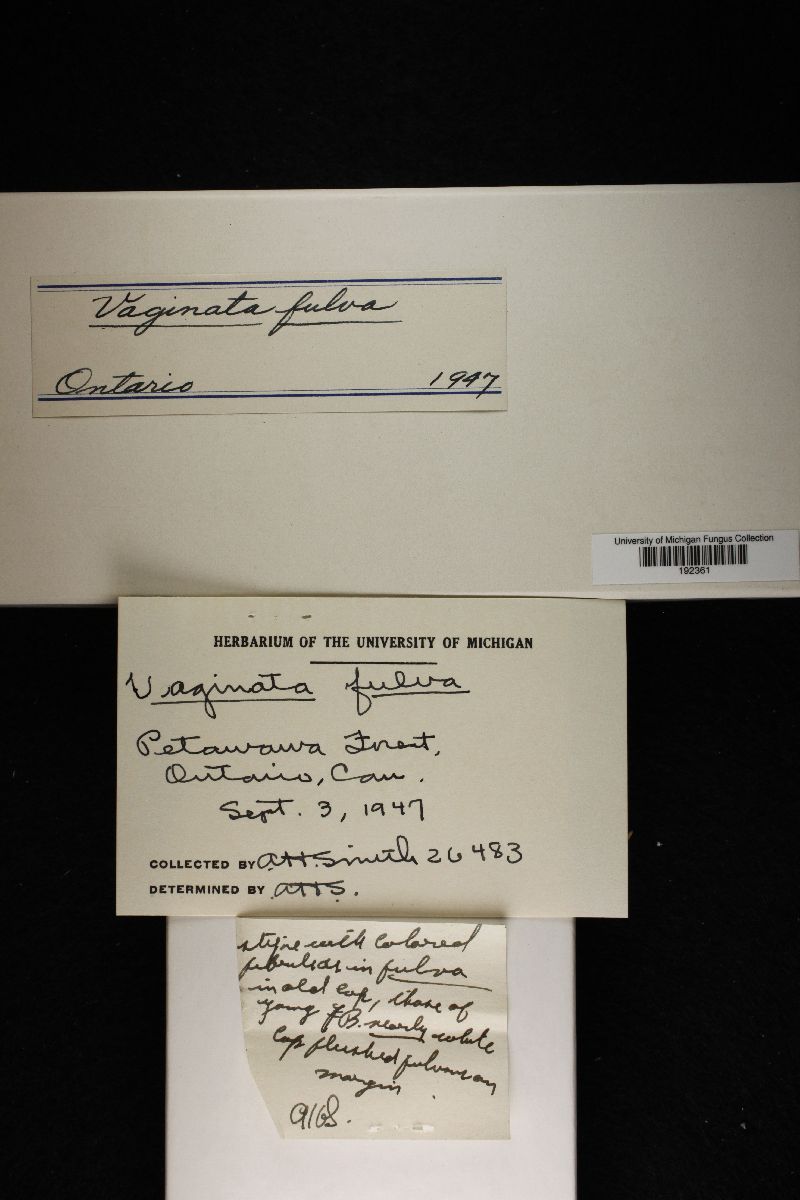 Vaginata fulva
Ontario 1947
University of Michigan Fungus Collection
192361
HERBARIUM OF THE UNIVERSITY OF MICHIGAN
Vaginata fulva
Petawawa Forest,
Ontario, Can.
Sept. 3, 1947
COLLECTED BY AHSmith 26483
DETERMINED BY AHS.
stipe with colored
fibrils as in fulva
in old cap, those of
young FB. nearly white
Cap flushed fulvous on
margin.
AHS.